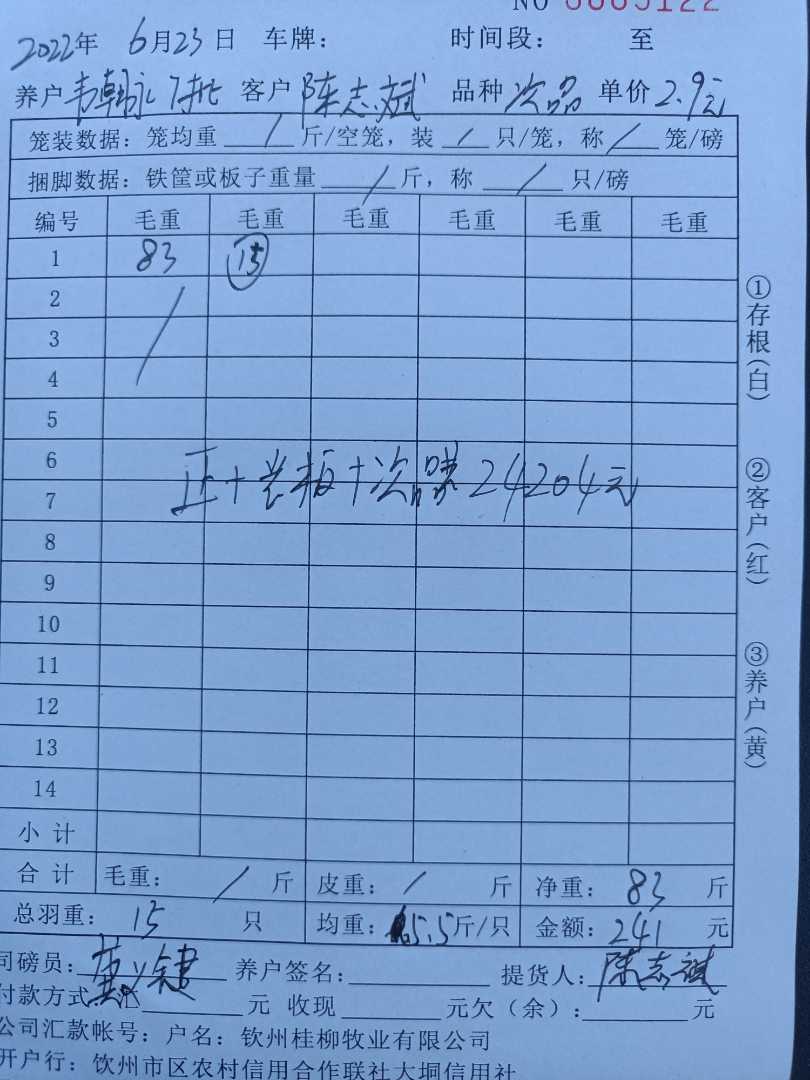 NO 0005122
2022年 6月23日 车牌： 时间段： 至
养户 韦朝永7批 客户 陈志斌 品种 次品 单价 2.9元
笼装数据：笼均重 / 斤/空笼，装 / 只/笼，称 / 笼/磅
捆脚数据：铁筐或板子重量 / 斤，称 / 只/磅
编号 毛重 毛重 毛重 毛重 毛重 毛重
1 83 15
2 /
3
4
5
6
正+半板+次品 24204元
7
8
9
10
11
12
13
14
小计
合计 毛重： / 斤 皮重： / 斤 净重： 83 斤
总羽重： 15 只 均重： 5.5斤/只 金额： 241 元
司磅员： 养户签名： 提货人： 陈志斌
付款方式： 汇 元 收现 元欠（余）： 元
公司汇款帐号：户名：钦州桂柳牧业有限公司
开户行：钦州市区农村信用合作联社大垌信用社
①存根(白)
②客户(红)
③养户(黄)